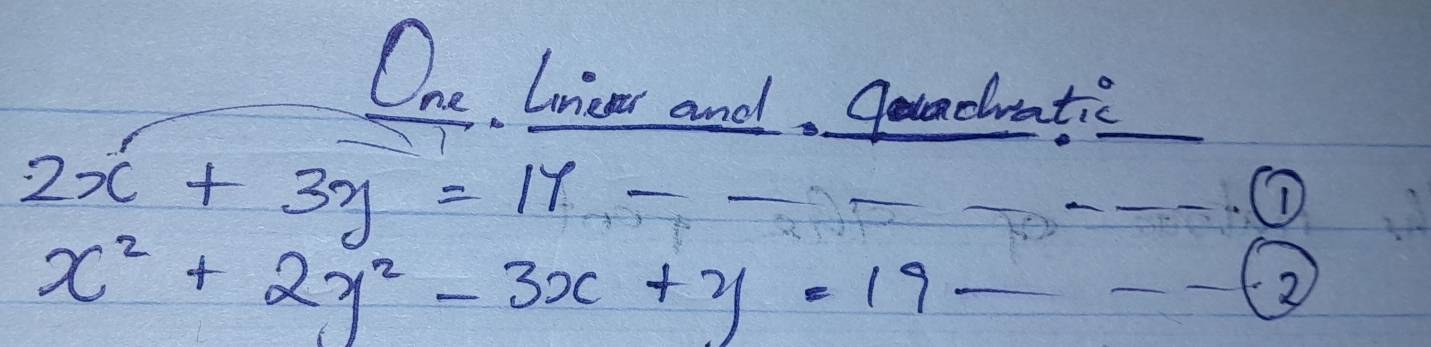 One Linear and Quadratic
2x + 3y = 14 - - - - - - - ①
x² + 2y² - 3x + y = 19 - - - ②